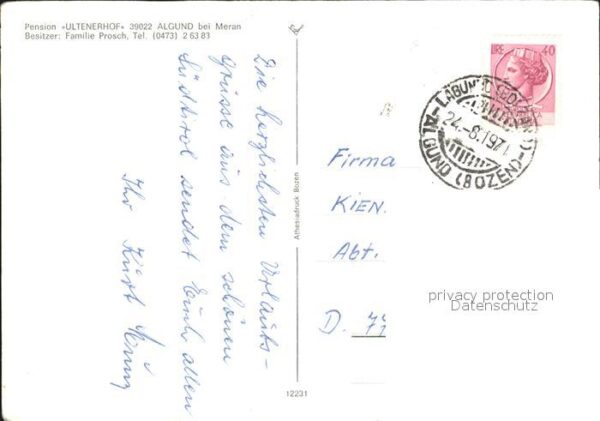 Pension »ULTENERHOF« 39022 ALGUND bei Meran
Besitzer: Familie Prosch, Tel. (0473) 2 63 83
Die herzlichsten Urlaubs-
grüsse aus dem schönen
Südtirol sendet Euch allen
Ihr Kurt
Athesiadruck Bozen
12231
LIRE 40
LAGUNDO (BOLZANO)
24.-6.1971
ALGUND (BOZEN)
Firma
KIEN.
Abt.
D. 77
privacy protection
Datenschutz